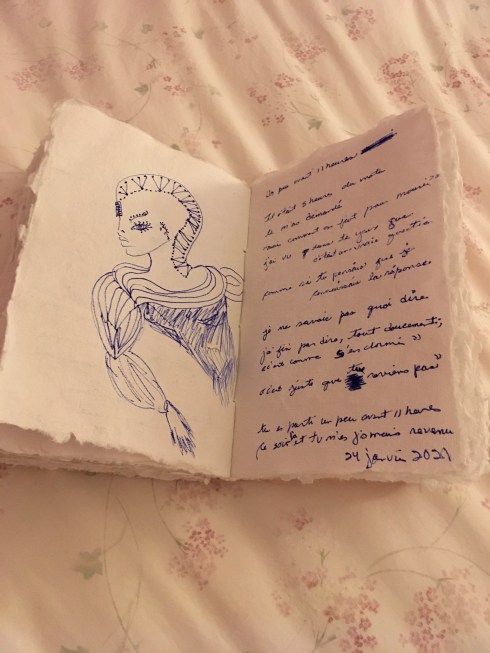 un peu avant 11 heures
Il était 9 heure du matin
tu m'as demandé
mais comment on fait pour mourir?
j'ai vu dans tes yeux que
c'était une vraie question
comme si tu pensais que je
connaissais la réponse
je ne savais pas quoi dire
j'ai fini par dire, tout doucement,
c'est comme s'endormir »
c'est juste que tu reviens pas »
tu es parti un peu avant 11 heures
ce soir là et tu n'es jamais revenu
24 janvier 2021